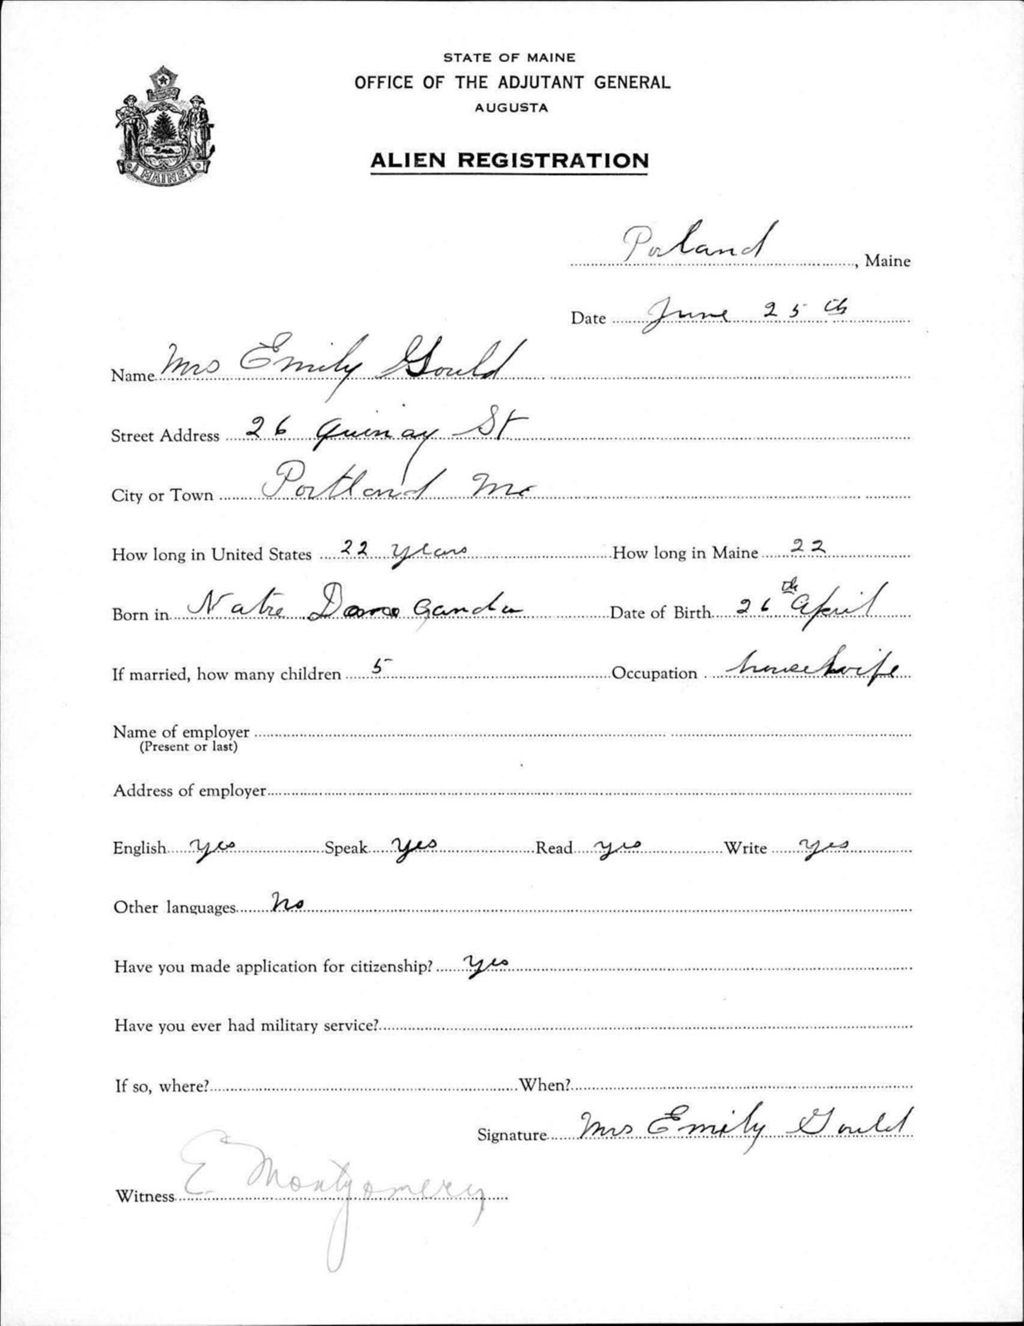 STATE OF MAINE
OFFICE OF THE ADJUTANT GENERAL
AUGUSTA
MAINE
ALIEN REGISTRATION
Porland, Maine
Date June 25th
Name Mrs Emily Gould
Street Address 26 Quinay St
City or Town Portland Me
How long in United States 22 years How long in Maine 22
Born in Natre Dame Canda Date of Birth 26th April
If married, how many children 5 Occupation housewife
Name of employer
(Present or last)
Address of employer
English yes Speak yes Read yes Write yes
Other languages no
Have you made application for citizenship? yes
Have you ever had military service?
If so, where? When?
Signature Mrs Emily Gould
Witness E Montgomery